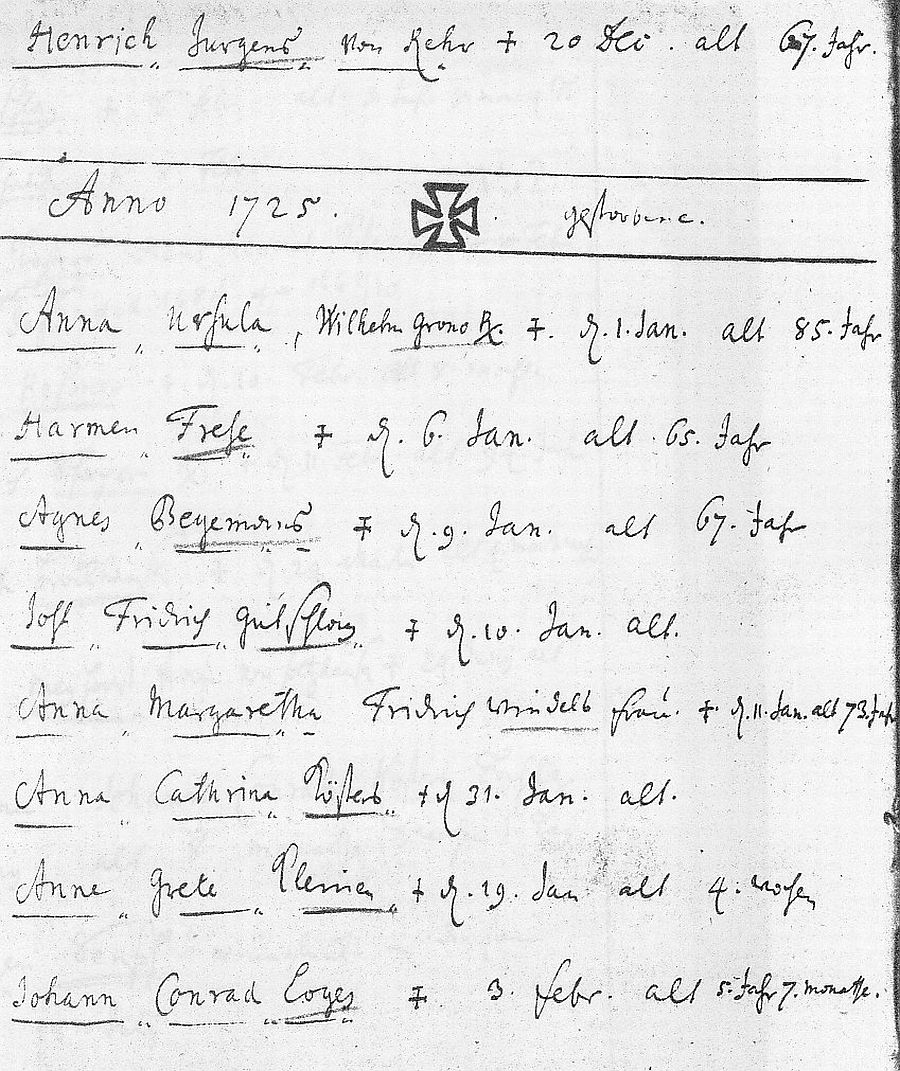 Henrich Jurgens von Rehr † 20 Dec. alt 67. Jahr.
Anno 1725. gestorbene.
Anna Ursula, Wilhelm Grono R. †. d. 1. Jan. alt 85. Jahr
Harmen Frese † d. 6. Jan. alt 65. Jahr
Agnes Begemans † d. 9. Jan. alt 67. Jahr
Jost Fridrich † d. 10. Jan. alt.
Anna Margaretha Fridrich Windels frau. † d. 11. Jan. alt 73. Jahr
Anna Cathrina Kösters † d 31. Jan. alt.
Anne Grete † d. 19. Jan alt 4. wochen
Johann Conrad Loges † 3. febr. alt 5. Jahr 7. monathe.